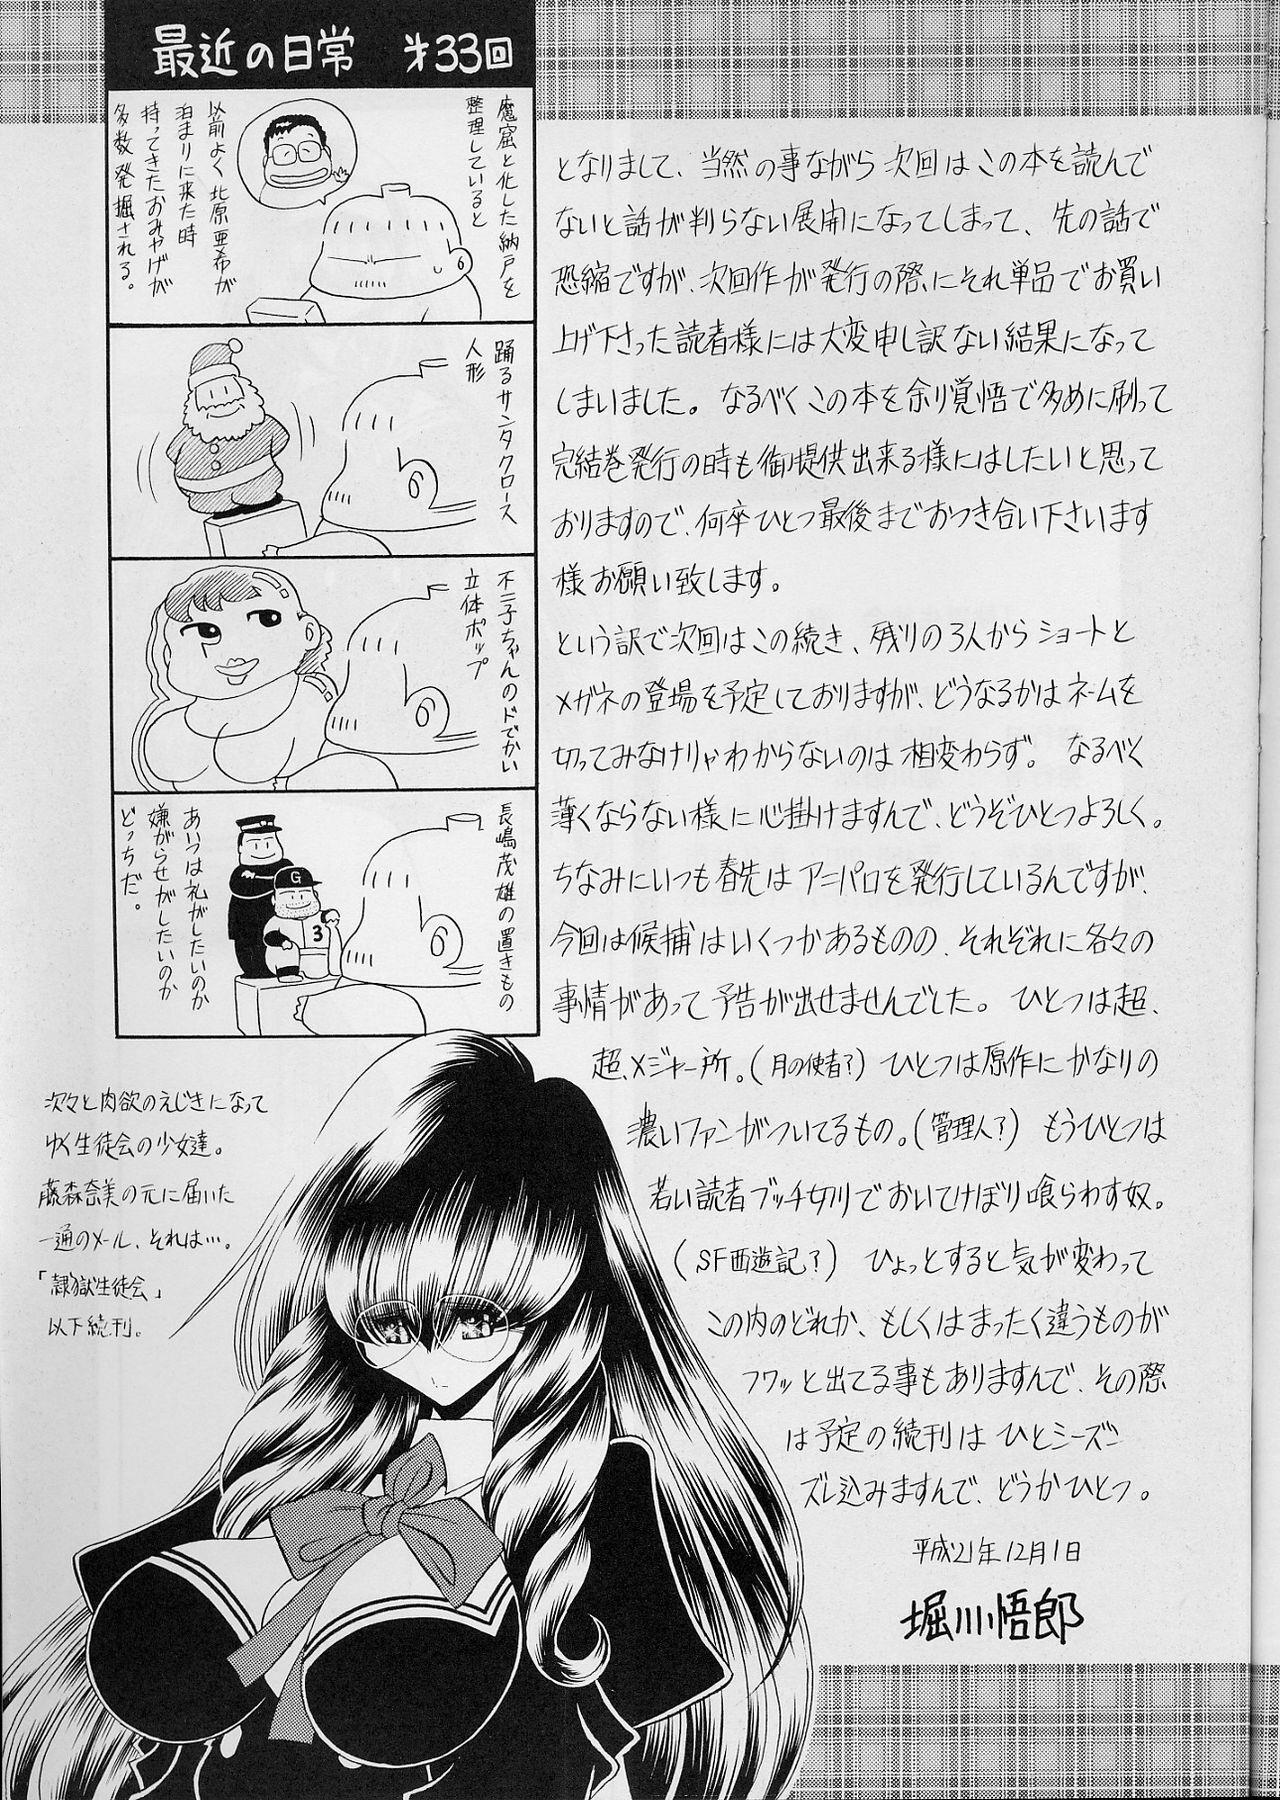 最近の日常 第33回
魔窟と化した納戸を
整理していると
以前よく北原亜希が
泊まりに来た時
持ってきたおみやげが
多数発掘される。
踊るサンタクロース
人形
不二子ちゃんのドでかい
立体ポップ
長嶋茂雄の置きもの
あいつは礼がしたいのか
嫌がらせがしたいのか
どっちだ。
G
3
となりまして、当然の事ながら次回はこの本を読んで
ないと話が判らない展開になってしまって、先の話で
恐縮ですが、次回作が発行の際にそれ単品でお買い
上げ下さった読者様には大変申し訳ない結果になって
しまいました。なるべくこの本を余り覚悟で多めに刷って
完結巻発行の時も御提供出来る様にはしたいと思って
おりますので、何卒ひとつ最後までおつき合い下さいます
様お願い致します。
という訳で次回はこの続き、残りの3人からショートと
メガネの登場を予定しておりますが、どうなるかはネームを
切ってみなけりゃわからないのは相変わらず。なるべく
薄くならない様に心掛けますんで、どうぞひとつよろしく。
ちなみにいつも春先はアニパロを発行しているんですが、
今回は候補はいくつかあるものの、それぞれに各々の
事情があって予告が出せませんでした。ひとつは超、
超、メジャー所。(月の使者?)ひとつは原作にかなりの
濃いファンがついてるもの。(管理人?)もうひとつは
若い読者ブッチ切りでおいてけぼり喰らわす奴。
(SF西遊記?)ひょっとすると気が変わって
この内のどれか、もしくはまったく違うものが
フワッと出てる事もありますんで、その際
は予定の続刊はひとシーズン
ズレ込みますんで、どうかひとつ。
平成21年12月1日
堀川悟郎
次々と肉欲のえじきになって
ゆく生徒会の少女達。
藤森奈美の元に届いた
一通のメール、それは…。
「隷獄生徒会」
以下続刊。